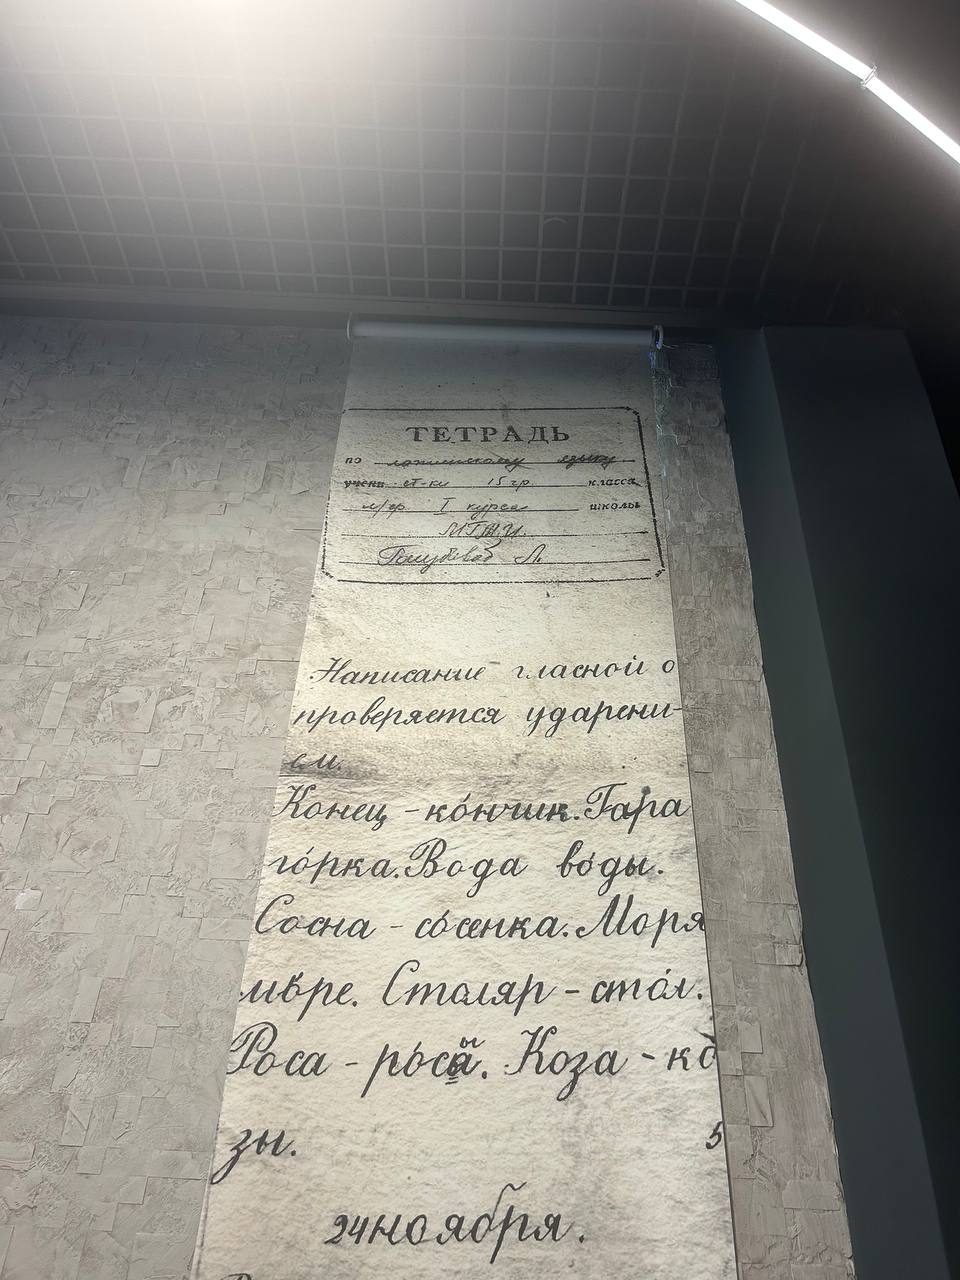 ТЕТРАДЬ
по латинскому языку
учени ст-ки 15 гр. класса
I курса школы
Голубевой Л.
Написание гласной о
проверяется ударени-
ем.
Конец - ко́нчик. Гара
го́рка. Вода во́ды.
Сосна - со́сенка. Моря
мо́ре. Столяр - сто́л.
Роса - ро́сы. Коза - ко́
зы. 5
24 ноября.